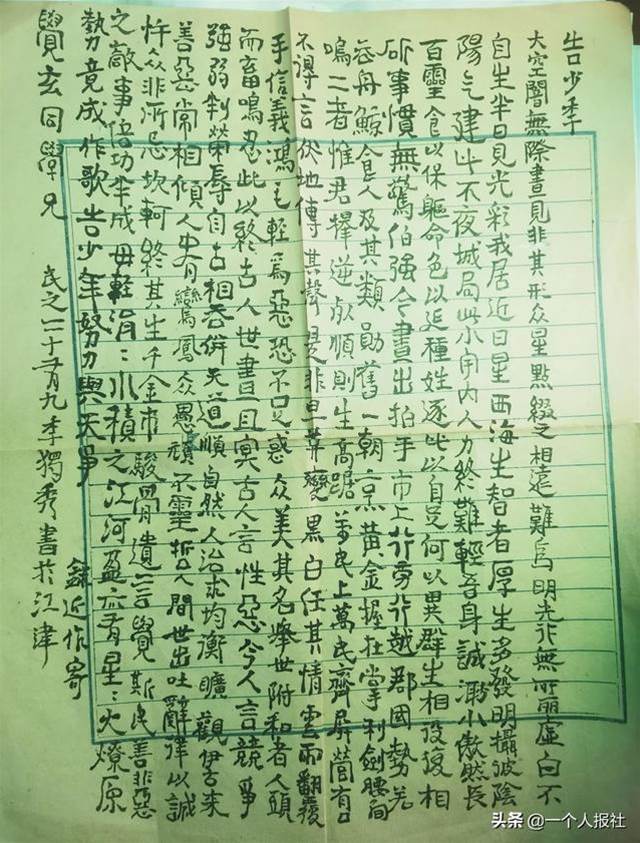 告少季
大空闇無際晝見非其形众星點綴之相遠難爲明光行無所麗虛白不
自生半日見光彩我居近日星西海生智者厚生多發明攝彼陰
陽气建此不夜城局此小宇內人力終難輕吾身誠渺小傲然長
百靈食以保軀命色以延種姓逐此以自足何以異群生相役復相
斫事慣無驚伯強今晝出拍手市上行旁行越郡國勢若
吞舟鯨食人及其類勛舊一朝烹黃金握在掌利劍腰间
鳴二者惟君擇逆死順則生高踞萬民上萬民齊屏營有口
不得言伏地傳其聲是非旦暮變黑白任其情雲雨翻覆
手信義鴻毛輕爲惡恐不足惑众美其名舉世附和者人頭
而畜鳴忍此以終古人世晝且冥古人言性惡今人言競爭
強弱判榮辱自古相吞併天道順自然人治求均衡曠觀伊古来
善惡常相傾人中有鸞鳳众愚頑不靈哲人間世出吐辭律以誠
忤众非所忌坎軻終其生千金市駿骨遺言覺斯民善非惡
之敵事倍功半成毋輕涓〻水積之江河盈亦有星〻火燎原
勢竟成作歌告少年努力與天爭
錄近作寄
覺玄同學兄
民之二十有九季獨秀書於江津
头条 @一个人报社